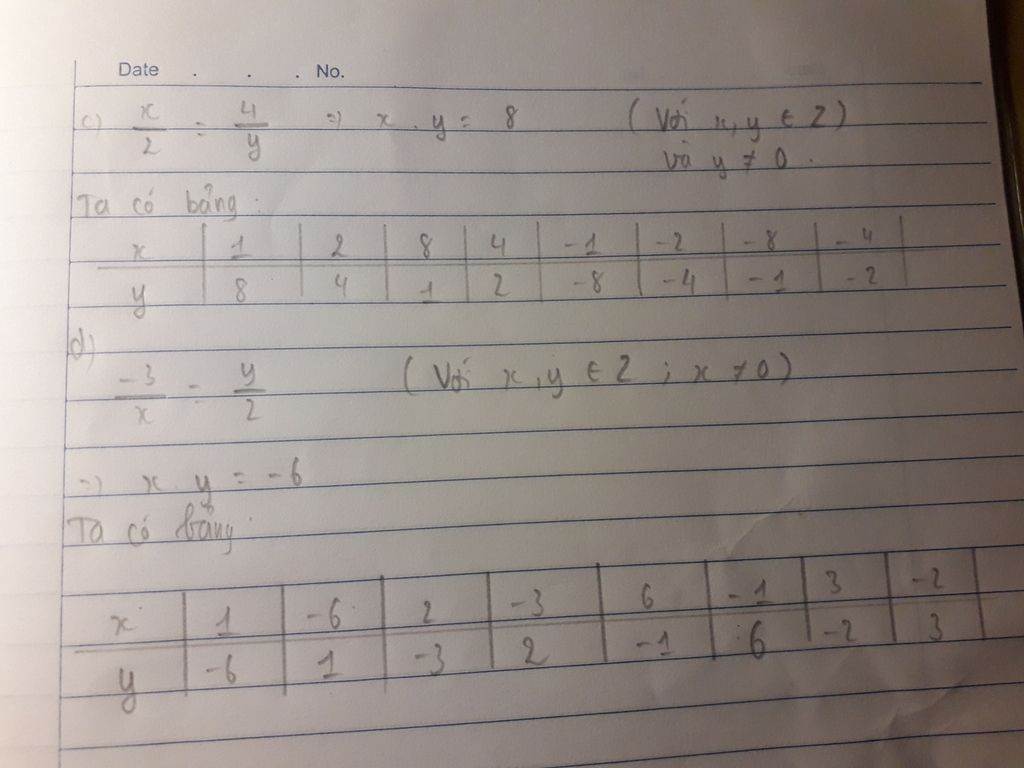 Date . . . No.
c) x/2 = 4/y => x . y = 8 (Với x, y ∈ Z)
và y ≠ 0 .
Ta có bảng :
x | 1 | 2 | 8 | 4 | -1 | -2 | -8 | -4
y | 8 | 4 | 1 | 2 | -8 | -4 | -1 | -2
d)
-3/x = y/2 (Với x, y ∈ Z ; x ≠ 0)
=> x . y = -6
Ta có bảng :
x | 1 | -6 | 2 | -3 | 6 | -1 | 3 | -2
y | -6 | 1 | -3 | 2 | -1 | 6 | -2 | 3